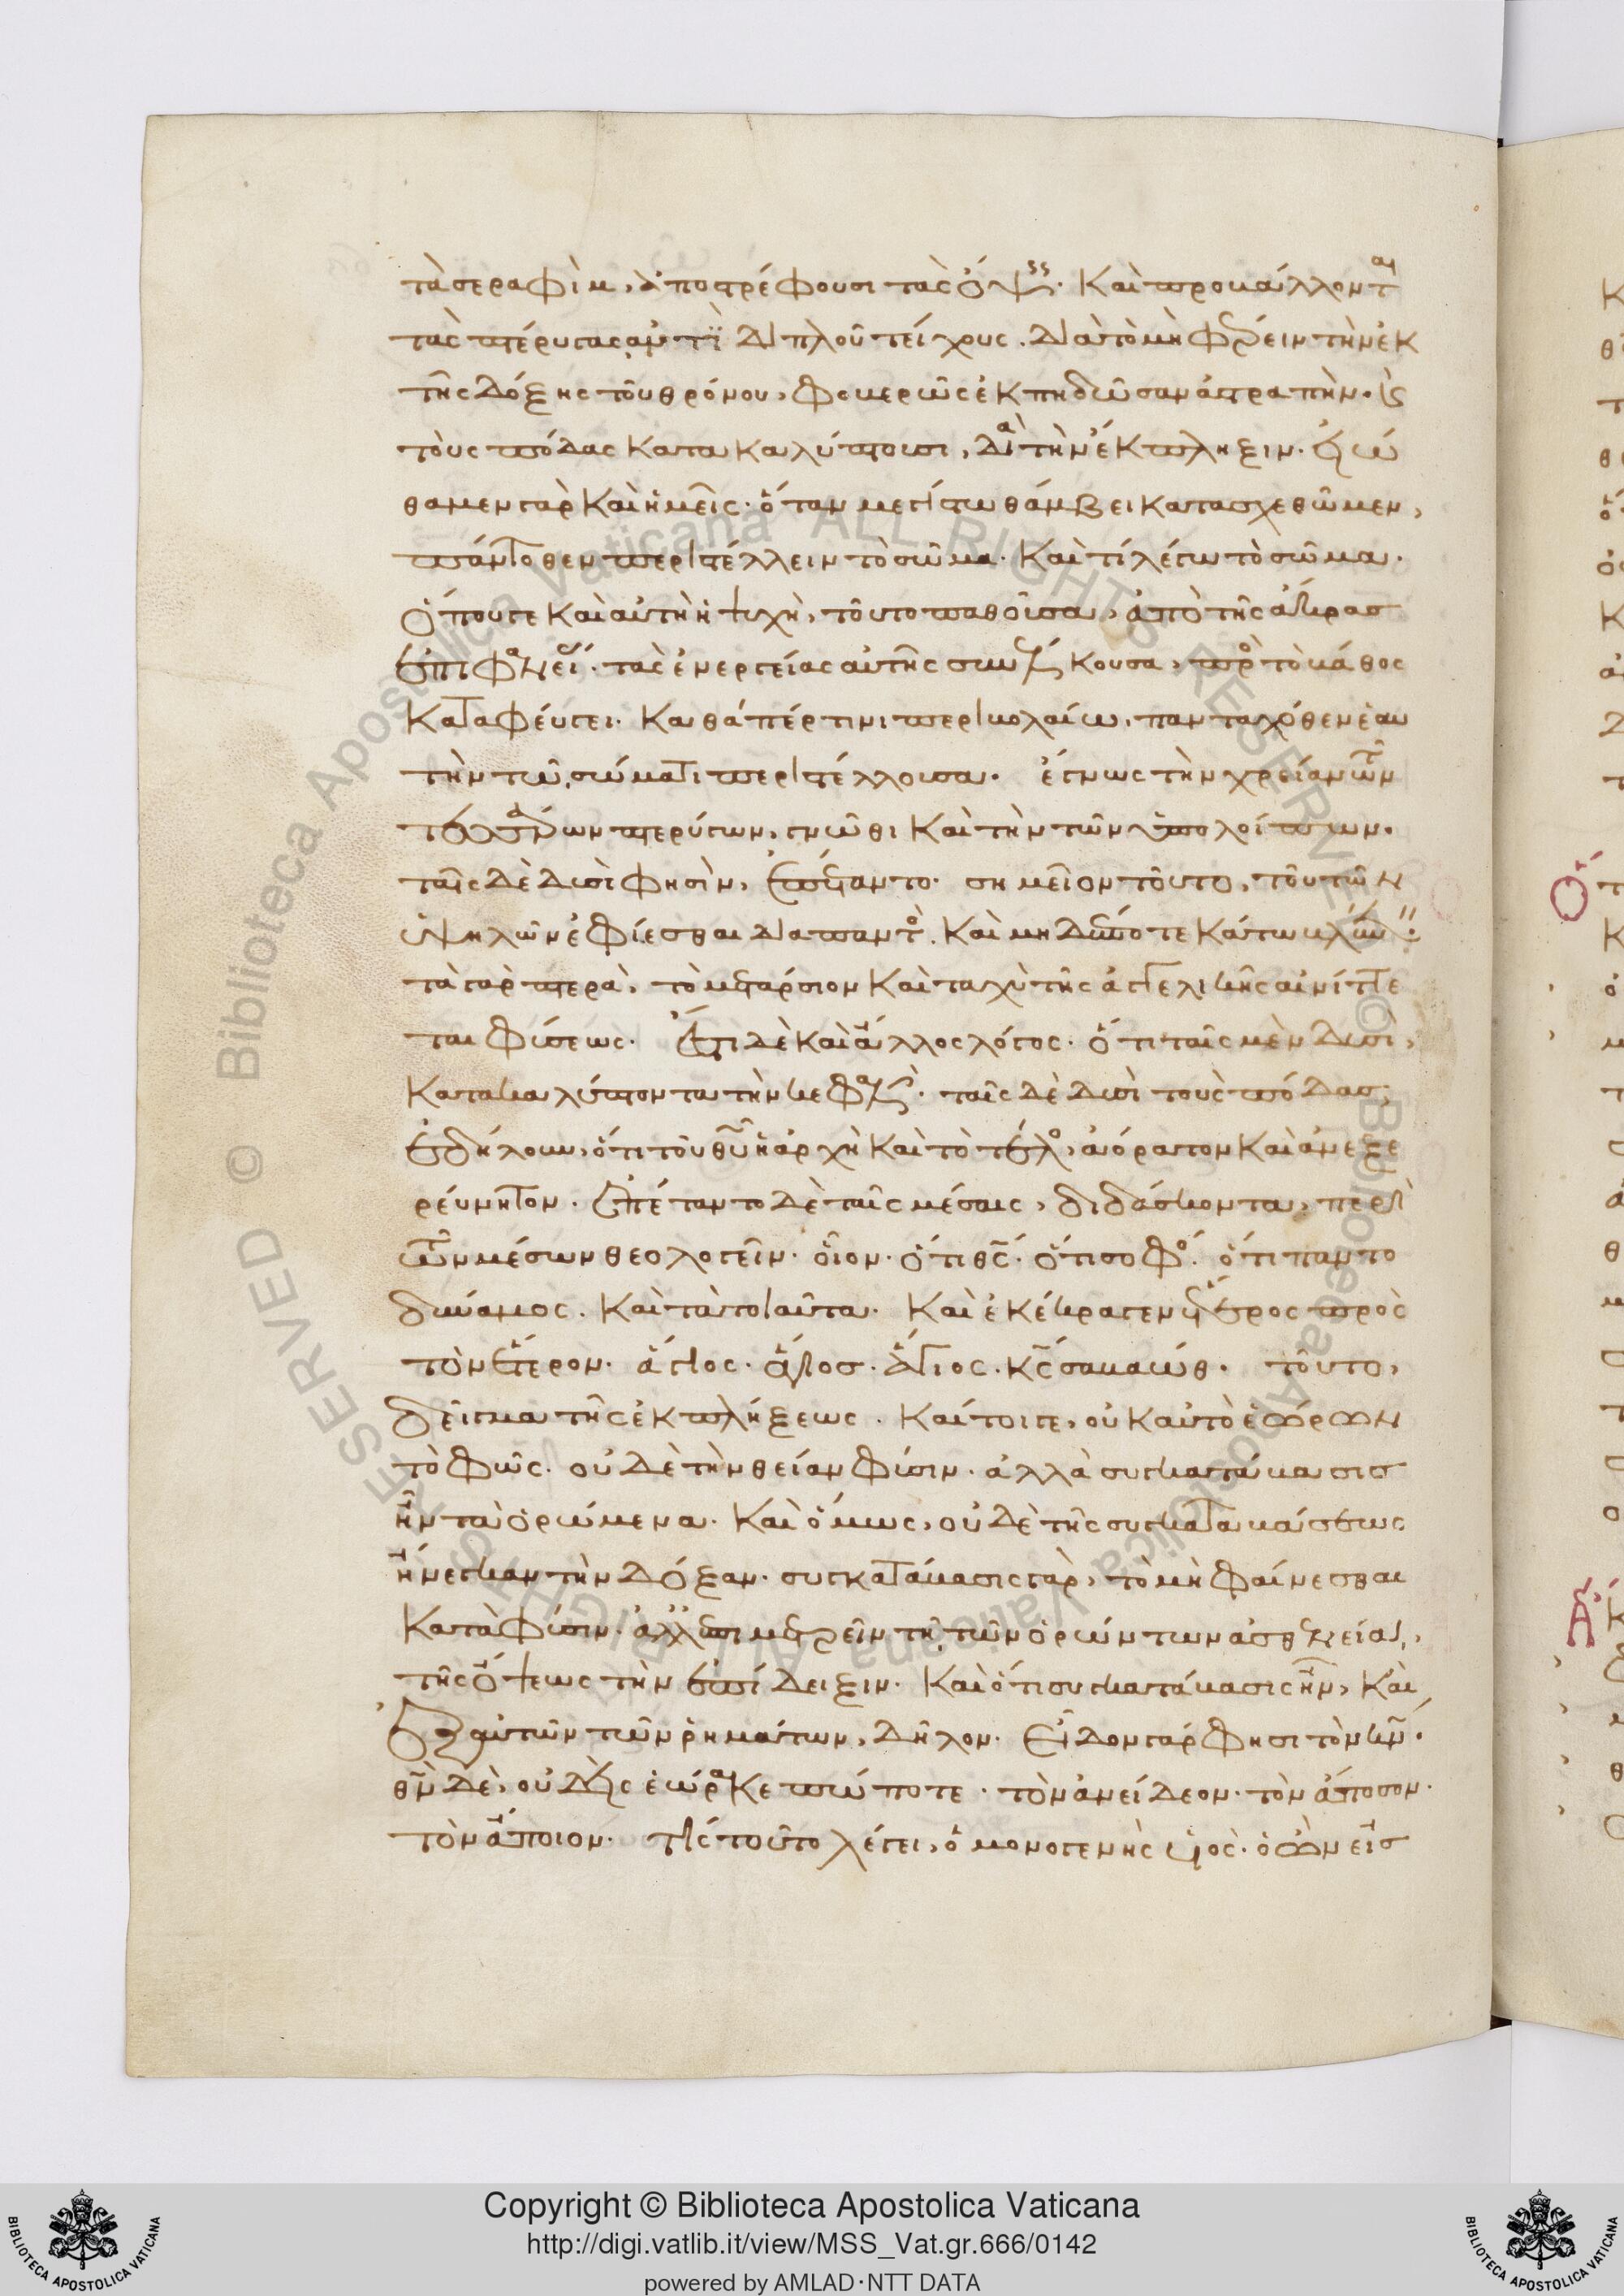 τὰ σεραφὶμ, ἀποστρέφουσι τὰς ὄψεις· καὶ προβάλλονται
τὰς πτέρυγας ἀντὶ διπλοῦ τείχους. διὰ τὸ μὴ φέρειν τὴν ἐκ
τῆς δόξης τοῦ θρόνου, φοβερῶς ἐκπηδῶσαν ἀστραπὴν. καὶ
τοὺς πόδας κατακαλύπτουσι, διὰ τὴν ἔκπληξιν· εἰώ
θαμεν γὰρ καὶ ἡμεῖς· ὅταν μεγίστω θάμβει κατασχεθῶμεν,
πάντοθεν περιστέλλειν τὸ σῶμα· καὶ τί λέγω τὸ σῶμα.
ὅπουγε καὶ αὐτὴ ἡ ψυχὴ, τοῦτο παθοῦσα, ἀπὸ τῆς ἄκρας
ἐπιφανείας· τὰς ἐνεργείας αὐτῆς συνέλκουσα, πρὸς τὸ βάθος
καταφεύγει· καθάπέρ τινι περιβολαίω, πανταχόθεν ἑαυ
τὴν τῷ σώματι περιστέλλουσα· ἔγνως τὴν χρείαν τῶν
τεσσάρων πτερύγων, γνῶθι καὶ τὴν τῶν ὑπολοίπων.
ταῖς δὲ δυσὶ φησὶν, ἐπέταντο· σημεῖον τοῦτο, τοῦ τῶν
ὑψηλῶν ἐφίεσθαι διαπαντὸς. καὶ μηδέποτε κάτω βλέπειν:
τὰ γὰρ πτερὰ, τὸ μετάρσιον καὶ ταχὺ τῆς ἀγγελικῆς αἰνίττε
ται φύσεως· ἔστι δὲ καὶ ἄλλος λόγος· ὅτι ταῖς μὲν δυσὶ,
κατακαλύπτοντα τὴν κεφαλὴν· ταῖς δὲ δυσὶ τοὺς πόδας,
ἐδήλουν, ὅτι τοῦ θυ ἡ ἀρχὴ καὶ τὸ τέλος, ἀόρατον καὶ ἀνεξε
ρεύνητον· ἐπέταντο δὲ ταῖς μέσαις, διδάσκοντα, περὶ
τῶν μέσων θεολογεῖν· οἷον· ὅτι θς· ὅτι σοφός· ὅτι παντο
δύναμος. καὶ τὰ τοιαῦτα· καὶ ἐκέκραγεν ἕτερος πρὸς
τὸν ἕτερον· ἅγιος· ἅγιος· ἅγιος· κς σαβαώθ· τοῦτο,
δεῖγμα τῆς ἐκπλήξεως· καίτοιγε, οὐκ αὐτὸ ἑώρων
τὸ φῶς· οὐδὲ τὴν θείαν φύσιν· ἀλλὰ συγκατάβασις
ἦν τὰ ὁρώμενα· καὶ ὅμως, οὐδὲ τῆς συγκαταβάσεως
ἤνεγκαν τὴν δόξαν· συγκατάβασις γὰρ, τὸ μὴ φαίνεσθαι
κατὰ φύσιν· ἀλλ' ἐπιμετρεῖν τῇ τῶν ὁρώντων ἀσθενείᾳ,
τῆς ὄψεως τὴν ἐπίδειξιν· καὶ ὅτι συγκατάβασις ἦν, καὶ
ἐξ αὐτῶν τῶν ῥημάτων, δῆλον· εἶδον γάρ φησι τὸν κν·
θν δὲ, οὐδεὶς ἑώρακε πώποτε· τὸν ἀνείδεον· τὸν ἄποσον·
τὸν ἄποιον· τίς τοῦτο λέγει, ὁ μονογενὴς υἱὸς· ὁ ὢν εἰς
Copyright © Biblioteca Apostolica Vaticana
http://digi.vatlib.it/view/MSS_Vat.gr.666/0142
powered by AMLAD·NTT DATA